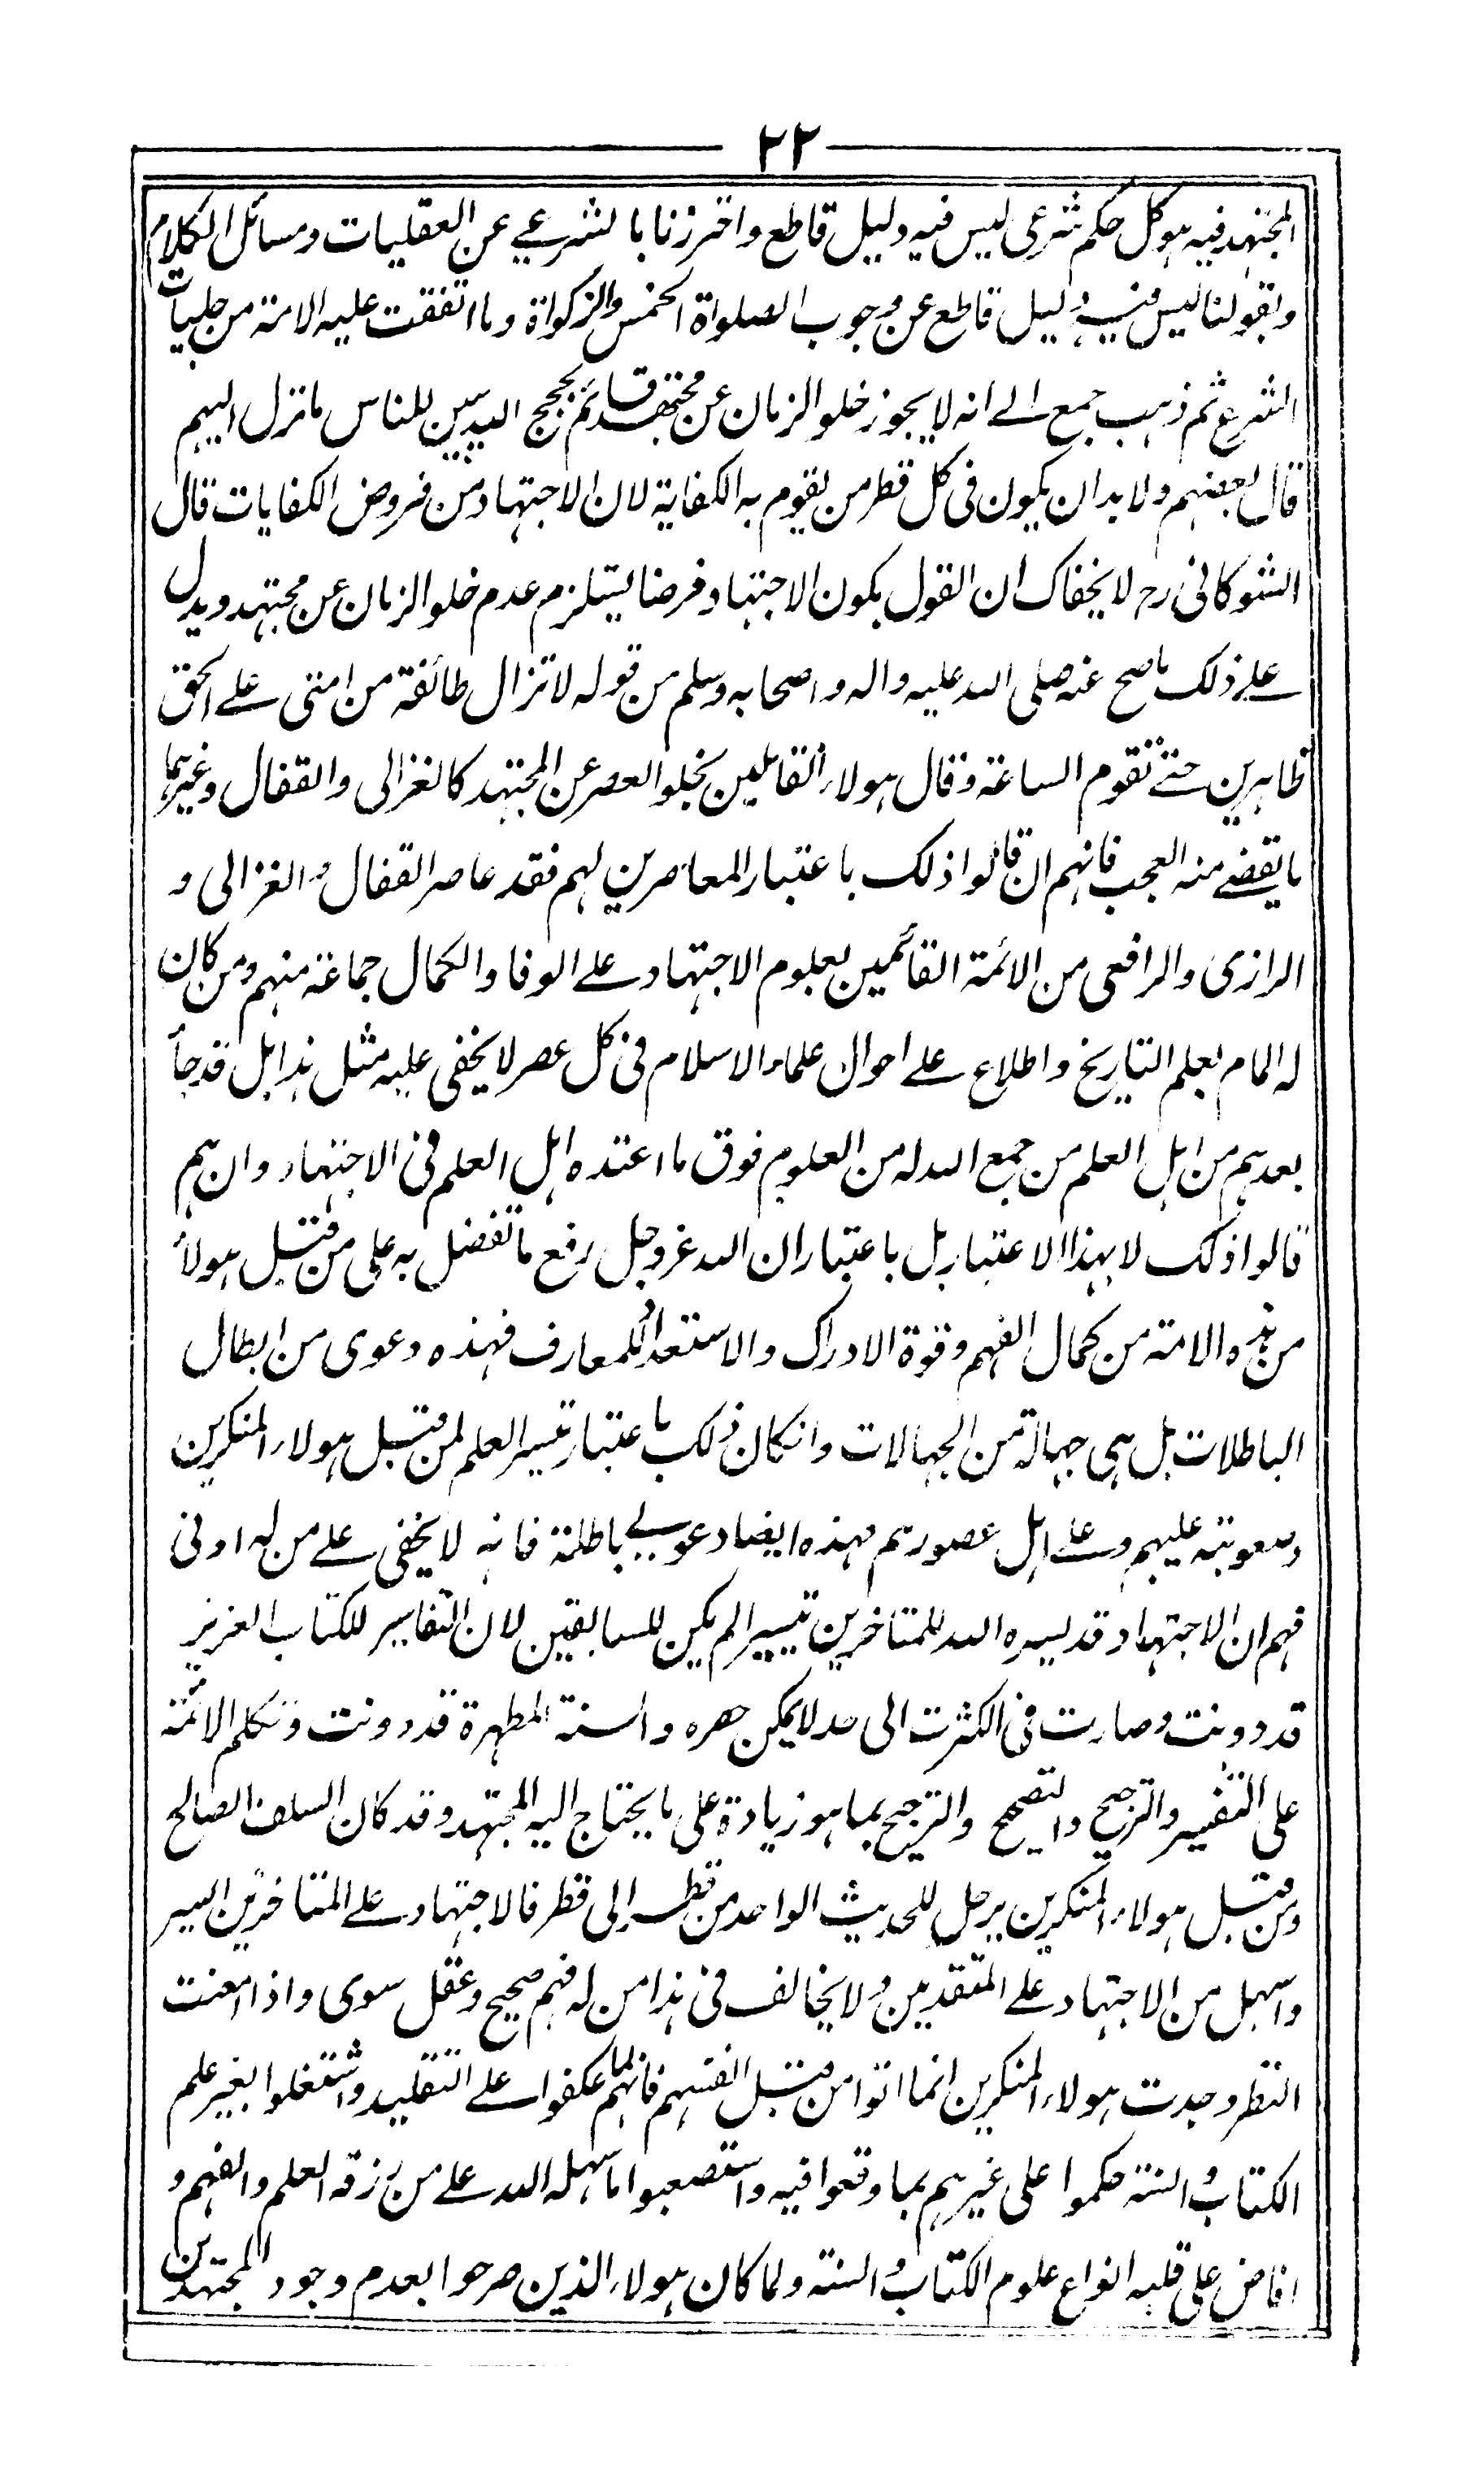 ٢٢
المجتهد فيه هو كل حكم شرعى ليس فيه دليل قاطع واخترزنا بالشرعي عن العقليات ومسائل الكلام
وبقولنا ليس فيه دليل قاطع عن وجوب الصلواة الخمس والزكواة وما اتفقت عليه الامة من جليات
الشرع ثم ذهب جمع الے انه لا يجوز خلو الزمان عن مجتهد قائم بحجج الله يبين للناس ما نزل اليهم
قال بعضهم ولا بد ان يكون فى كل قطر من يقوم به الكفاية لان الاجتهاد من فروض الكفايات قال
الشوكانى رح لا يخفاك ان القول بكون الاجتهاد فرضا يستلزم عدم خلو الزمان عن مجتهد ويدل
علے ذلك ما صح عنه صلى الله عليه واله واصحابه وسلم من قوله لا تزال طائفة من امتى علے الحق
ظاهرين حتے تقوم الساعة وقال هولاء القايلين بخلو العصر عن المجتهد كالغزالى والقفال وغيرهما
ما يقضے منه العجب فانهم ان قالوا ذلك باعتبار المعاصرين لهم فقد عاصر القفال والغزالى و
الرازى والرافعى من الائمة القائمين بعلوم الاجتهاد علے الوفا والكمال جماعة منهم ومن كان
له المام بعلم التاريخ واطلاع علے احوال علماء الاسلام فى كل عصر لا يخفى عليه مثل هذا بل قد جأ
بعدهم من اهل العلم من جمع الله له من العلوم فوق ما اعتده اهل العلم فى الاجتهاد وان هم
قالوا ذلك لا بهذا الاعتبار بل باعتبار ان الله عزوجل رفع ما تفضل به على من قبل هولأ
من هذه الامة من كمال الفهم وقوة الادراك والاستعداد للمعارف فهذه دعوى من ابطال
الباطلات بل هى جهالة من الجهالات وانكان ذلك باعتبار تيسر العلم لمن قبل هولاء المنكرين
وصعوبته عليهم وعلے اهل عصورهم فهذه ايضا دعوے باطلة فانه لا يخفى علے من له ادنى
فهم ان الاجتهاد قد يسره الله للمتاخرين تيسيرا لم يكن للسابقين لان التفاسير للكتاب العزيز
قد دونت وصارت فى الكثرت الى حد لا يمكن حصره والسنة المطهرة قد دونت وتكلم الائمة
على التفسير والترجيح والتصحيح والترجيح بما هو زيادة على ما يحتاج اليه المجتهد وقد كان السلف الصالح
ومن قبل هولاء المنكرين يرحل للحديث الواحد من قطر الى قطر فالاجتهاد علے المتاخرين ايسر
واسهل من الاجتهاد علے المتقدمين ولا يخالف فى هذا من له فهم صحيح وعقل سوى واذا امعنت
النظر وجدت هولاء المنكرين انما اتوا من قبل انفسهم فانهم لما عكفوا علے التقليد واشتغلوا بغير علم
الكتاب والسنة حكموا على غيرهم بما وقعوا فيه واستصعبوا ما سهله الله علے من رزقه العلم والفهم و
افاض على قلبه انواع علوم الكتاب والسنة ولما كان هولاء الذين صرحوا بعدم وجود المجتهدين